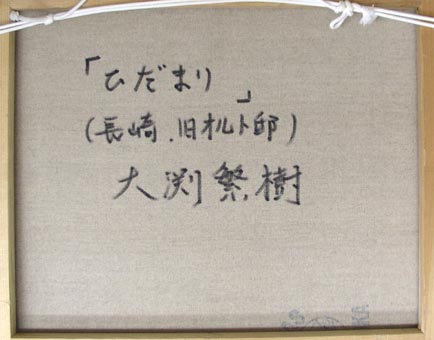 「ひだまり」
(長崎.旧オルト邸)
大渕繁樹